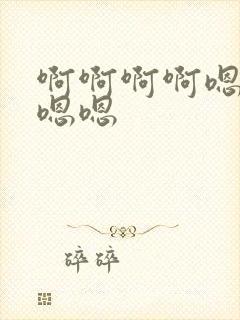 啊啊啊啊嗯
嗯嗯
碎碎